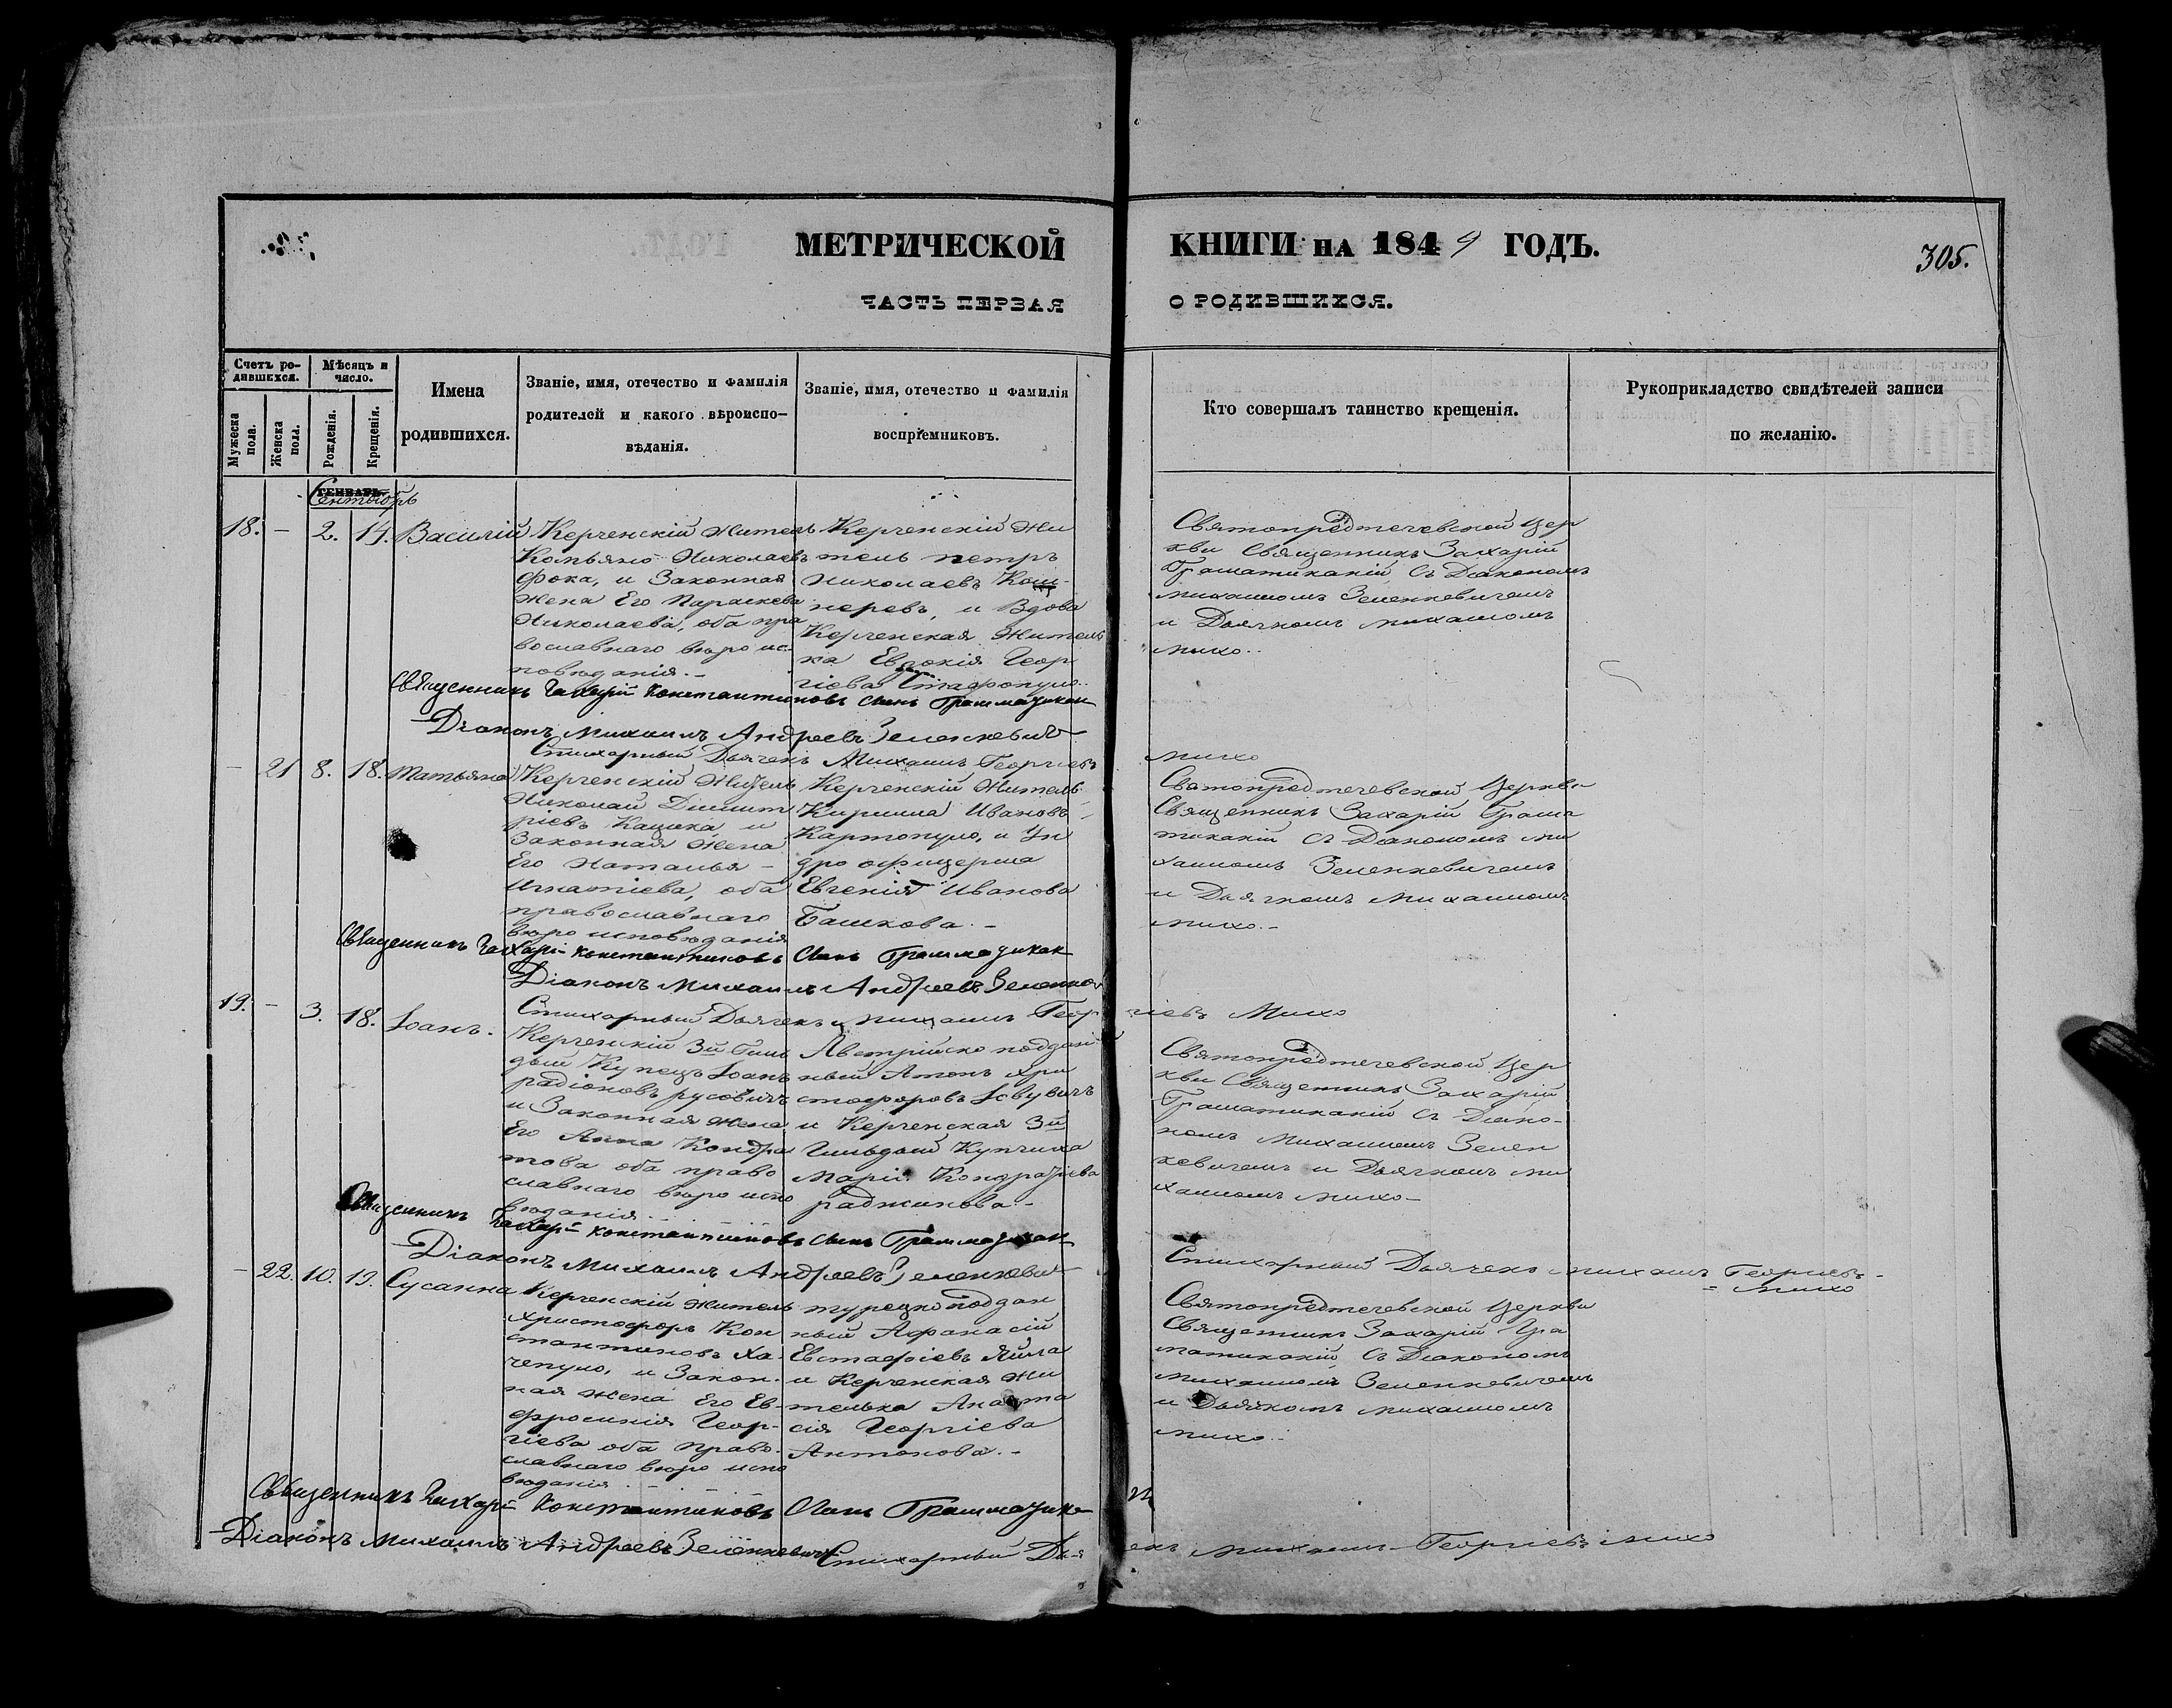 МЕТРИЧЕСКОЙ КНИГИ НА 1849 ГОДЪ.
305.
ЧАСТЬ ПЕРВАЯ О РОДИВШИХСЯ.
Счетъ родившихся.
Мужеска пола.
Женска пола.
Мѣсяцъ и число.
Рожденія.
Крещенія.
Имена
родившихся.
Званіе, имя, отечество и фамилія
родителей и какого вѣроиспо-
вѣданія.
Званіе, имя, отечество и фамилія
воспріемниковъ.
Кто совершалъ таинство крещенія.
Рукоприкладство свидѣтелей записи
по желанію.
Сентябрь
18. – 2. 14. Василій
Керченскій житель
Николаевъ
Фока, и Законная
жена Его Параскева
Николаева, оба пра
вославнаго вѣро ис-
повѣданія.
Керченскій жи
тель петръ
Николаевъ
неревъ, и Вдова
Керченская житель
ка Евдокія Геор
гіева Ставропуло..
Святопредтечевской Цер
кви Священникъ Захарій
Граматикакій съ Діакономъ
михаиломъ Зеленкевичемъ
и Дьячкомъ михаиломъ
михо..
Священникъ Захарій Константиновъ Сынъ Грамматикаки
Діаконъ Михаилъ Андреевъ Зеленкевичъ
Стихарный Дьячекъ Михаилъ Георгіевъ михо
– 21 8. 18. Татьяна
Керченскій Житель
Николай Димит
ріевъ и
Законная жена
Его Наталья –
Игнатіева, оба
православнаго
вѣро исповѣданія
Керченскій Житель
Кирилла Ивановъ
Картопуло, и Ун
дро офицерша
Евгенія Иванова
Башкова. –
Святопредтечевской Церкви
Священникъ Захарій Грама
тикакій съ Діакономъ ми
хаиломъ Зеленкевичемъ
и Дьячкомъ михаиломъ
михо. –
Священникъ Захарій Константиновъ Сынъ Грамматикак
Діаконъ Михаилъ Андреевъ Зеленкев
Стихарный Дьячекъ михаилъ Георгіевъ Михо
19. – 3. 18. Іоанъ.
Керченскій 3й Гиль
дыи Купецъ Іоанъ
радіоновъ русовичъ
и Законная жена
Его Анна Кондра
това оба право
славнаго вѣро испо
вѣданія
Австрійско поддан
ный Атонъ Хри
стофоровъ
и Керченская 3й
Гильдыи Купчиха
Марія Кондратіева
раджикова. –
Святопредтечевской Цер
кви Священникъ Захарій
Граматикакій съ Діако-
номъ Михаиломъ Зелен
кевичемъ и Дьячкомъ ми
хаиломъ михо –
Священникъ Захарій Константиновъ Сынъ Грамматикак
Діаконъ Михаилъ Андреевъ Зеленкевич
Стихарный Дьячекъ михаилъ Георгіевъ –
= михо
– 22. 10. 19. Сусанна
Керченскій житель
Христофоръ Кон
стантиновъ Ха-
чепуло, и Закон-
ная жена Его Ев-
фросинія Геор-
гіева оба право-
славнаго вѣро испо
вѣданія
турецко поддан
ный Афанасій
Евстафіевъ Яйла
и Керченская жи
телька Анаста
сія Георгіева
Антонова. –
Святопредтечевской Церкви
Священникъ Захарій Гра
матикакій съ Діакономъ
михаиломъ Зеленкевичемъ
и Дьячкомъ михаиломъ
михо..
Священникъ Захарій Константиновъ Сынъ Грамматикаки
Діаконъ Михаилъ Андреевъ Зеленкевичъ
Стихарный Дьячекъ михаилъ Георгіевъ михо